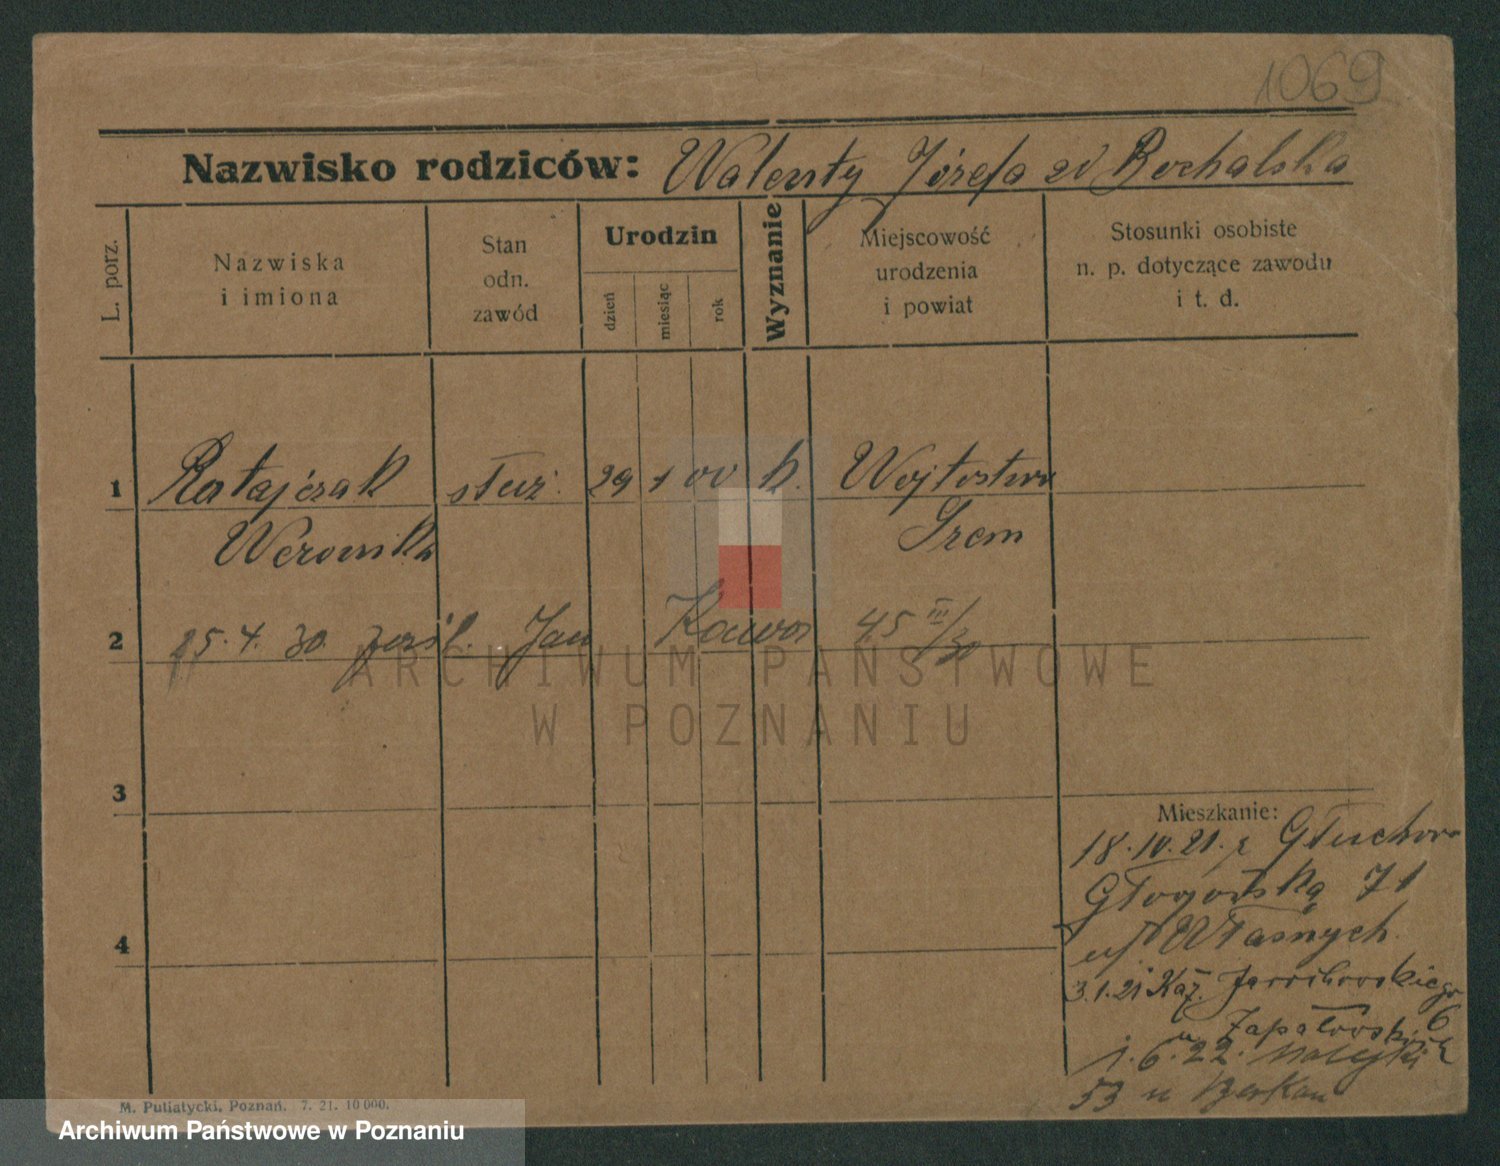 1069
Nazwisko rodziców: Walenty Józefa zd Bochalska
L. porz.
Nazwiska
i imiona
Stan
odn.
zawód
Urodzin
dzień
miesiąc
rok
Wyznanie
Miejscowość
urodzenia
i powiat
Stosunki osobiste
n. p. dotyczące zawodu
i t. d.
1 Ratajczak służ. 29 1 00 k. Wojtostwo
Weronika Śrem
2 15.4.30 Jan Kawa 45 III/30
ARCHIWUM PAŃSTWOWE
W POZNANIU
3
Mieszkanie:
18.10.21. z Głuchowa
Głogowska 71
4
u Własnych
3.1.21 Kaź. Jarochowskiego
6
u Zapałowskich
1.6.22. Matejki
53 u
M. Putiatycki, Poznań. 7. 21. 10 000.
Archiwum Państwowe w Poznaniu